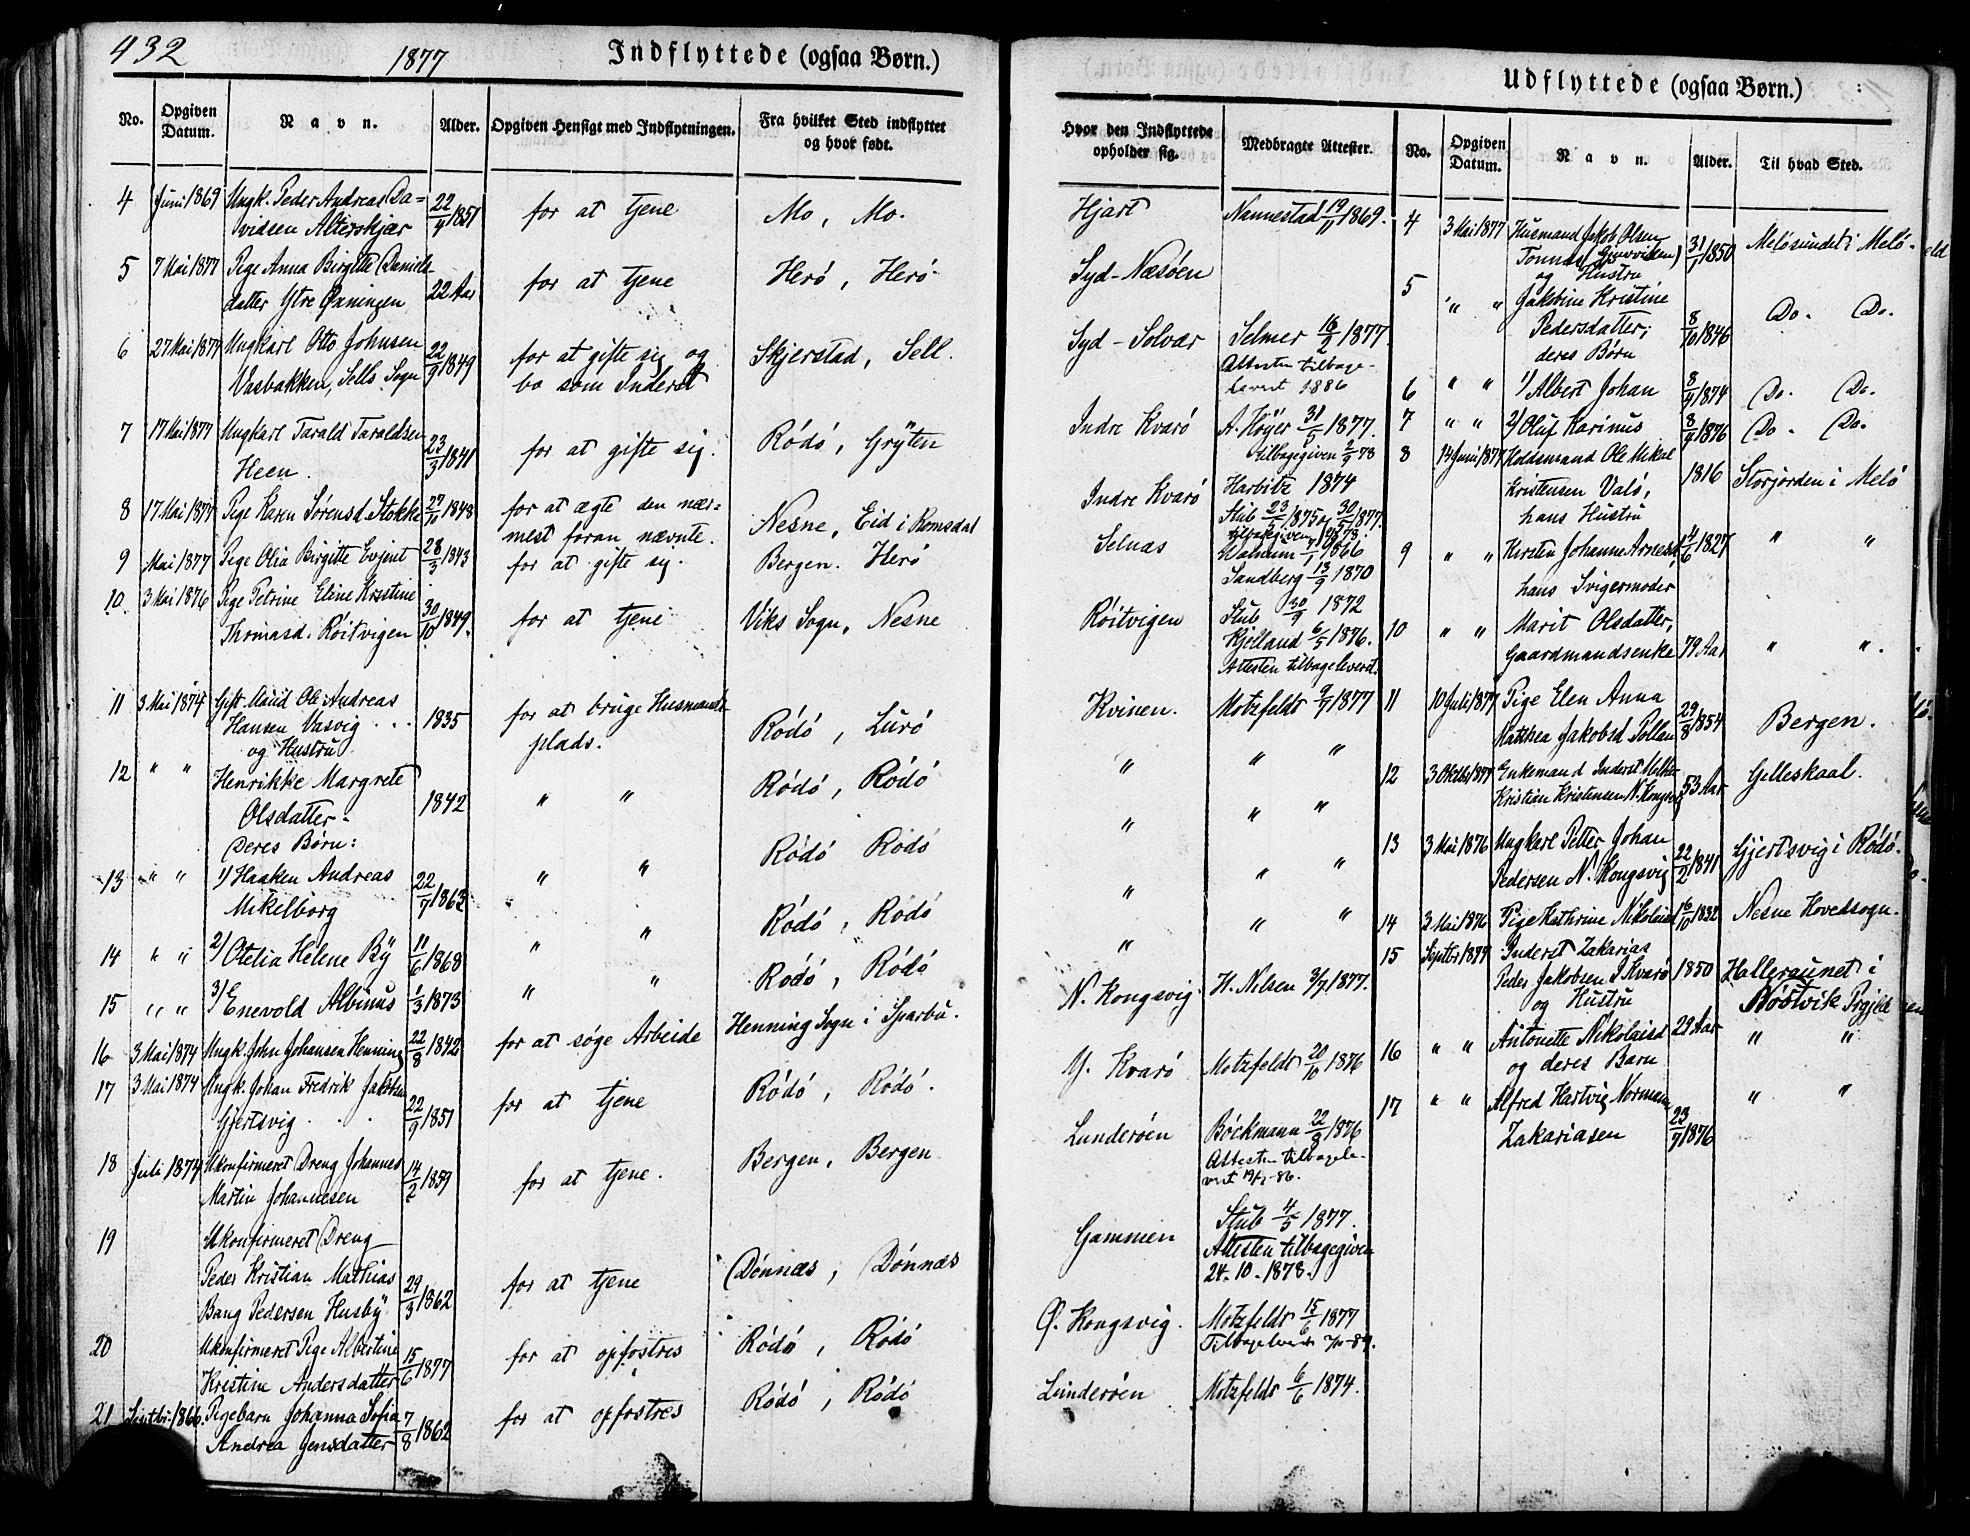 432
1877
Indflyttede (ogsaa Børn.)
No. Opgiven Datum. Navn. Alder. Opgiven Hensigt med Indflytningen. Fra hvilket Sted indflyttet og hvor født.
4 Juni 1869 Ungk. Peder Andreas Da=
vidsen Alterskjær 22/4 1851 for at tjene Mo, Mo.
5 7 Mai 1877 Pige Anna Birgitte Daniels
datter Ytre Øxningen 22 Aar for at tjene Herö, Herö
6 27 Mai 1877 Ungkarl Otto Johnsen
Vasbakken, Sells Sogn 22/9 1849 for at gifte sig og
bo som Inderst Skjerstad, Sell.
7 17 Mai 1877 Ungkarl Tarald Taraldsen
Heen. 23/3 1841 for at gifte sig. Rödö, Gryten
8 17 Mai 1877 Pige Karen Sörensd. Stokke 27/10 1848 for at ægte den nær=
mest foran nævnte. Nesne, Eid i Romsdal
9 Mai 1877 Pige Olia Birgitte Evjent 28/3 1843 for at gifte sig. Bergen. Herö
10. 3 Mai 1876 Pige Petrine Eline Kristine
Thomasd. Röitvigen 30/10 1849. for at tjene Viks Sogn, Nesne
11 3 Mai 1874 Gift Mand Ole Andreas
Hansen Vasvig 1835 for at bruge Husmands
plads. Rödö, Lurö
og Hustru
12 " " Henrikke Margrete
Olsdatter - 1842 " " Rödö, Rödö
Deres Børn:
13 " " 1) Haaken Andreas
Mikelborg 22/7 1863 " " Rödö Rödö
14 " " 2) Otelia Helene By 11/6 1868 " " Rödö, Rödö
15 " " 3) Enevold Albinus 1/3 1873 " " Rödö, Rödö
16 3 Mai 1874 Ungk. John Johansen Henning 22/8 1842 for at søge Arbeide Henning Sogn i Sparbu.
17 3 Mai 1874 Ungk. Johan Fredrik Jakobsen
Gjertsvig 22/9 1851 for at tjene Rödö, Rödö.
18 Juli 1877 Ukonfirmeret Dreng Johannes
Martin Johannesen 14/2 1859 for at tjene. Bergen, Bergen
19 Ukonfirmeret Dreng
Peder Kristian Mathias
Bang Pedersen Husby 29/3 1862 for at tjene Dönnæs, Dönnæs
20 Ukonfirmeret Pige Albertine
Kristine Andersdatter 15/6 1877 for at opfostres Rödö, Rödö
21 Septbr. 1866 Pigebarn Johanna Sofia
Andrea Jensdatter 7/8 1862 for at opfostres Rödö, Rödö
Udflyttede (ogsaa Børn.)
Hvor den Indflyttede opholder sig. Medbragte Attester. No. Opgiven Datum. Navn. Alder. Til hvad Sted.
Hjart Nannestad 19/11 1869.
Syd-Næsöen
Syd-Solvær Selmer 16/5 1877.
Attesten tilbage-
levert 1886
Indre Kvarö A. Höyer 31/5 1877.
tilbagegiven 2/9 78
Indre Kvarö Harbitz 1874
Stub 23/5 1875 30/5 1877.
Selnæs 1/1 1866
Sandberg 13/9 1870
Röitvigen Stub 30/9 1872
Kjelland 6/5 1876.
Attesten tilbageleveret.
Kvinen. Motzfeldt 9/7 1877
" " "
" " "
" " "
" " "
N. Kongsvig H. Nilsen 3/7 1877.
Y. Kvarö Motzfeldt 20/10 1876
Lunderöen Böckmann 22/8 1876
Attesten tilbagele-
Gammen Stub 4/5 1877.
Attesten tilbagegiven
24.10.1878.
Ø. Kongsvig. Motzfeldt 15/6 1877
Lunderöen Motzfeldt 6/6 1874.
4 3 Mai 1877 Husmand Jakob Olsen
Tonnes 31/1 1850 Melösundet i Melö.
og Hustru
5 " " Jakobine Kristine
Pedersdatter; 8/10 1846 Do. Do.
deres Børn
6 " " 1) Albert Johan 8/4 1874 Do. Do.
7 " " 2) Oluf Karinus 8/9 1876 Do. Do.
8 14 Juni 1877 Ole Mikal
Kristensen Valö, 1816 Storjorden i Melö
hans Hustru
9 " " Kirsten Johanne Arnesd. 4/6 1827 " "
hans Svigermoder
10 " " Marit Olsdatter,
Gaardmandsenke 79 Aar " ".
11 10 Juli 1877 Pige Elen Anna
Matthea Jakobsd. Pollen 29/8 1854 Bergen.
12 3 Oktbr 1877 Enkemand Inderst
Kristian Kristensen N. Kongsvig 53 Aar Gilleskaal.
13 3 Mai 1876 Ungkarl Petter Johan
Pedersen N. Kongsvig 22/2 1841 Gjertsvig i Rödö.
14 3 Mai 1876 Pige Kathrine Nikolaisd. 16/10 1832 Nesne Hovedsogn.
15 Septbr 1877 Inderst Zakarias
Peder Jakobsen I. Kvarö 1850 Hallersunet i
og Hustru Böstvik Prgjeld
16 " " Antonette Nikolaisd. 29 Aar " "
og deres Barn
17 " " Alfred Hartvig Normann
Zakariasen 23/7 1876 " "